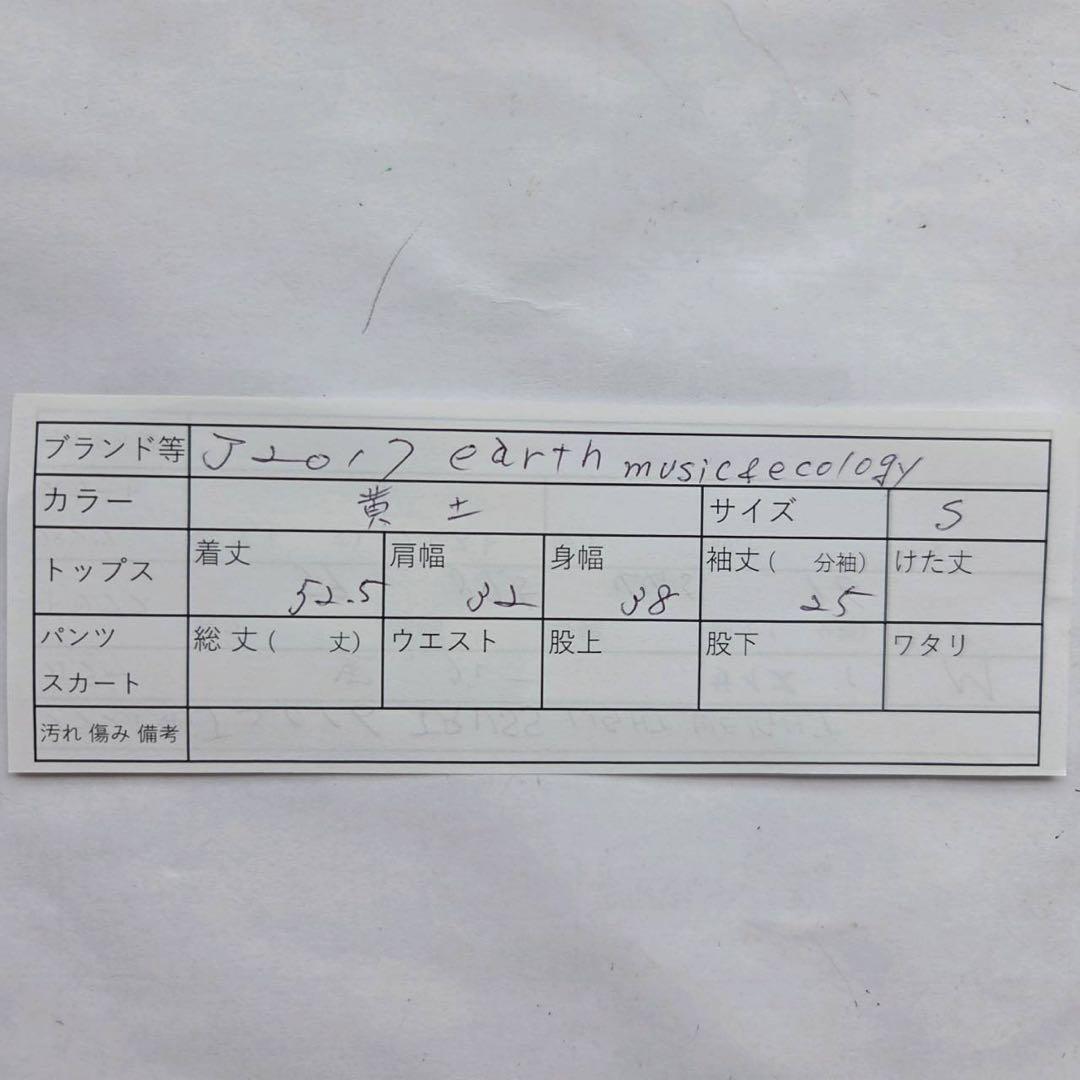 ブランド等 J2017 earth music&ecology
カラー 黄土 サイズ S
トップス 着丈 52.5 肩幅 32 身幅 38 袖丈( 分袖) 25 けた丈
パンツ スカート 総丈( 丈) ウエスト 股上 股下 ワタリ
汚れ 傷み 備考